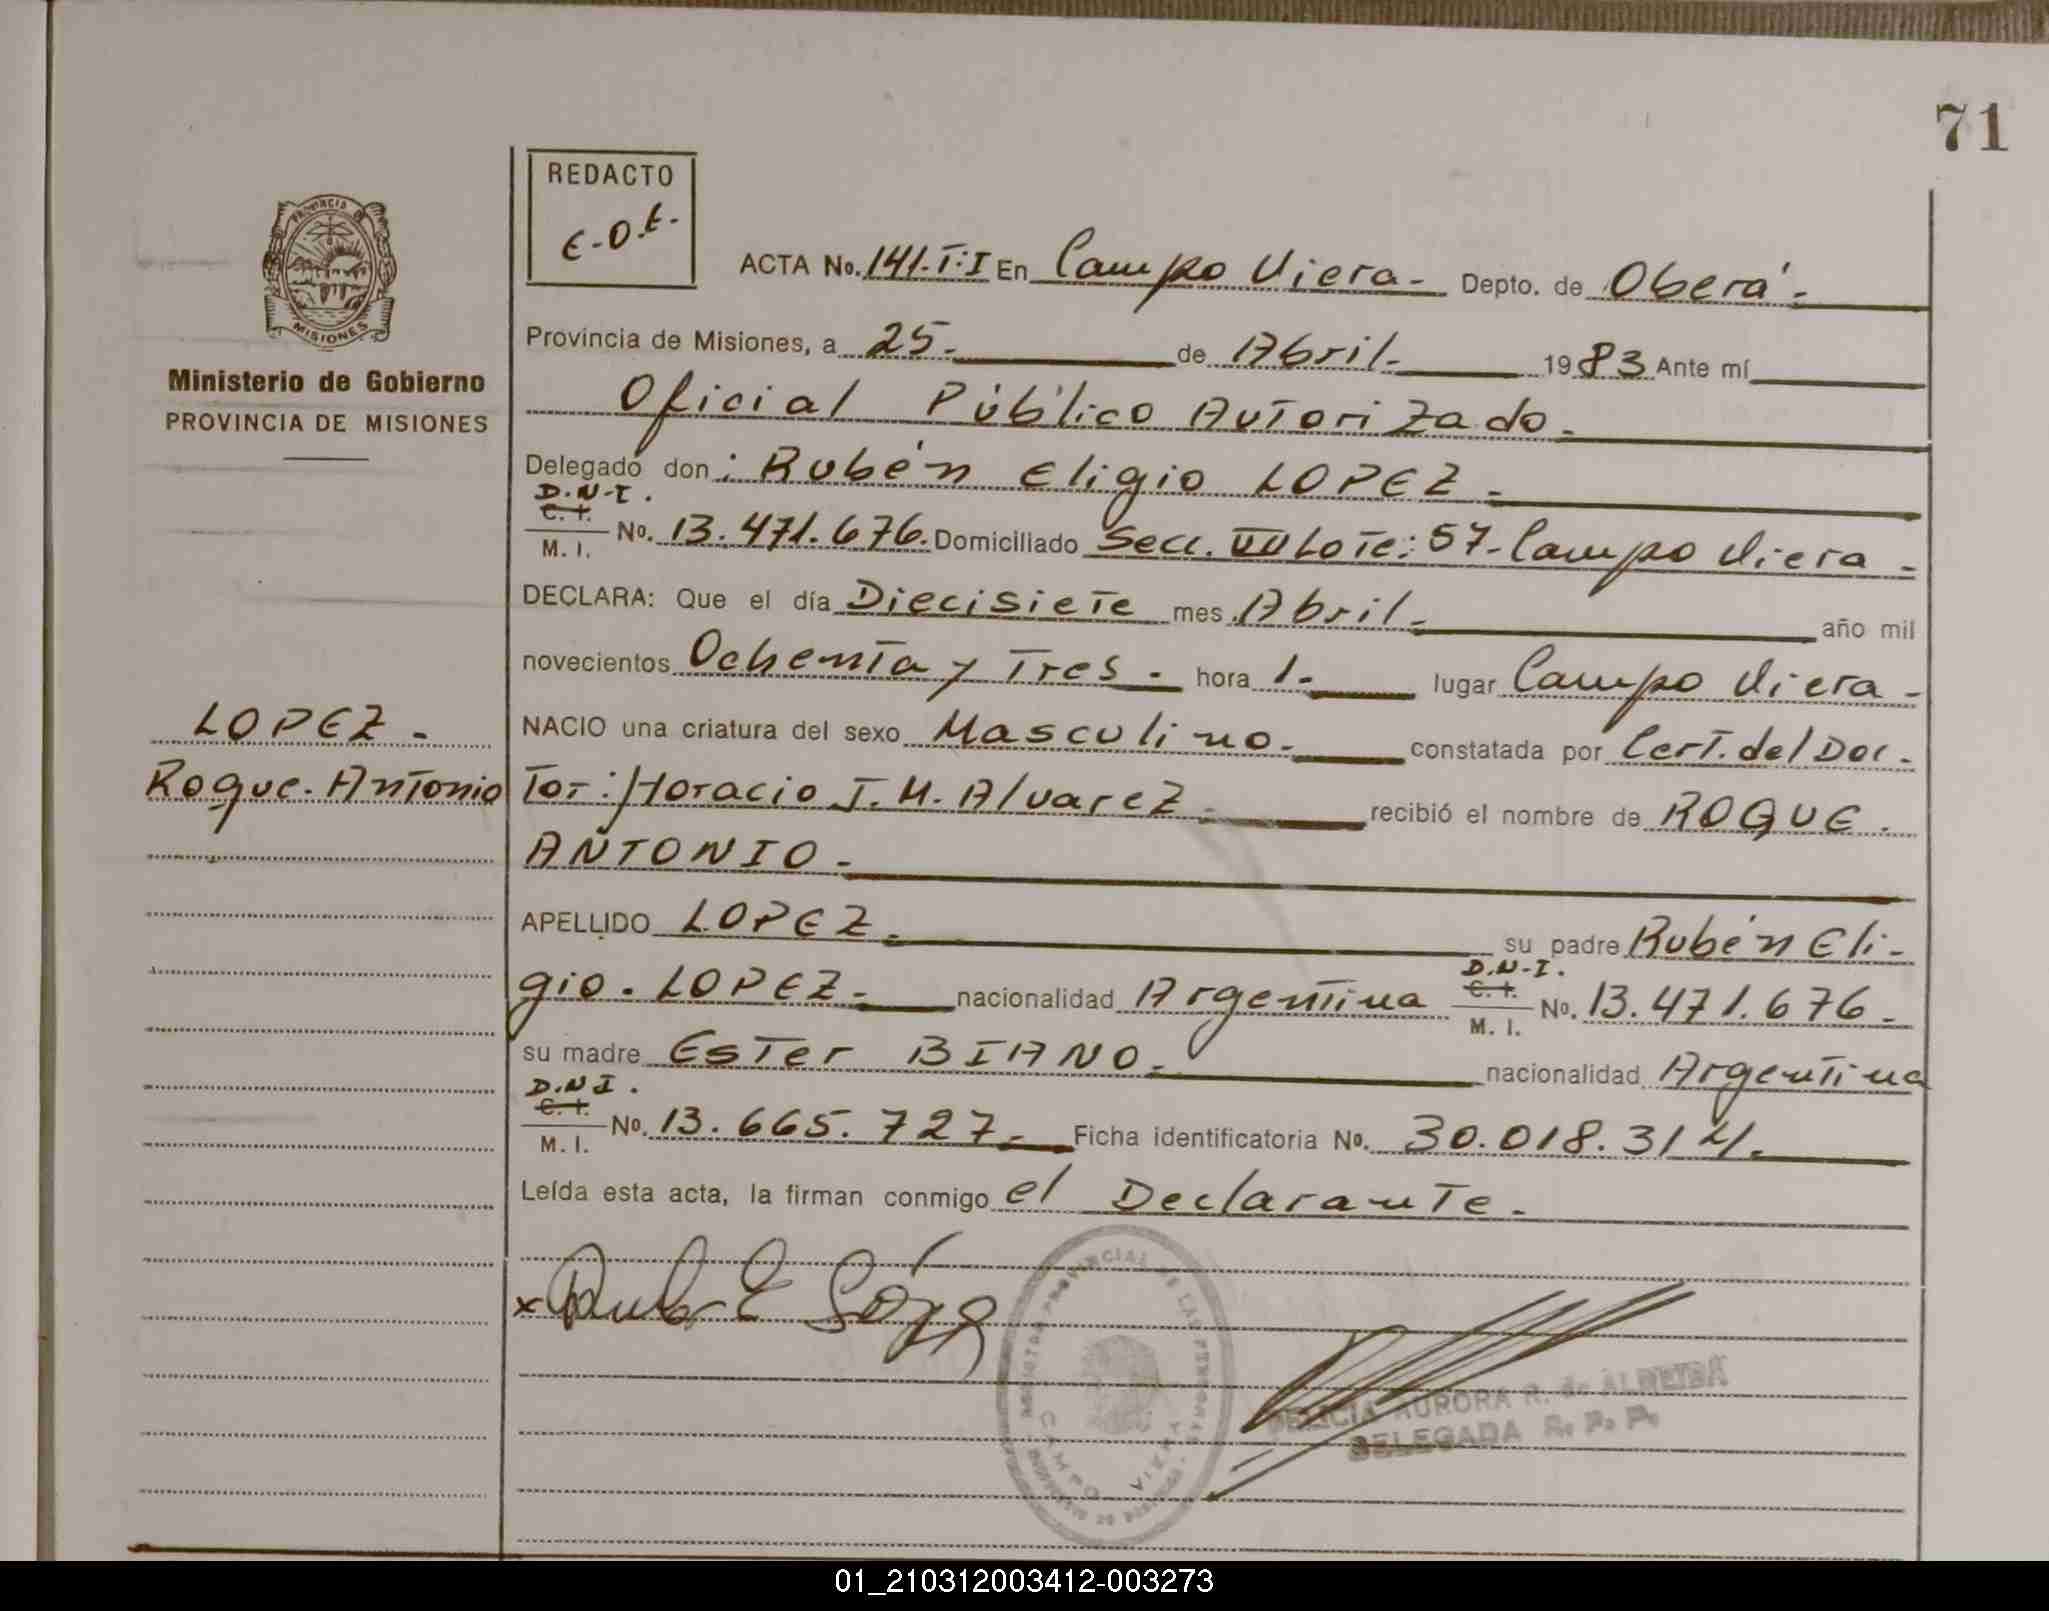 71
REDACTO
E.O.E.
PROVINCIA DE
MISIONES
ACTA No. 141.T:I En Campo Viera - Depto. de Oberá -
Ministerio de Gobierno
PROVINCIA DE MISIONES
Provincia de Misiones, a 25. de Abril. 1983 Ante mí
Oficial Público Autorizado.
Delegado don: Rubén Eligio LOPEZ -
D.N.I.
C. I.
M. I. No. 13.471.676. Domiciliado Secc. VII Lote: 57- Campo Viera -
DECLARA: Que el día Diecisiete mes Abril - año mil
novecientos Ochenta y Tres. hora 1. lugar Campo Viera -
LOPEZ -
Roque. Antonio
NACIO una criatura del sexo Masculino. constatada por Cert. del Doc.
Tor: Horacio J.M. Alvarez - recibió el nombre de ROQUE.
ANTONIO -
APELLIDO LOPEZ. su padre Rubén Eli-
gio. LOPEZ - nacionalidad Argentina D.N.I. C. I. M. I. No. 13.471.676 -
su madre Ester BIANO - nacionalidad Argentina
D.N.I.
C. I.
M. I. No. 13.665.727 - Ficha identificatoria No. 30.018.314.
Leída esta acta, la firman conmigo el Declarante -
x
PROVINCIAL DE LAS PERSONAS
CAMPO VIERA
FELICIA AURORA R. de ALMEIDA
DELEGADA R. P. P.
01_210312003412-003273